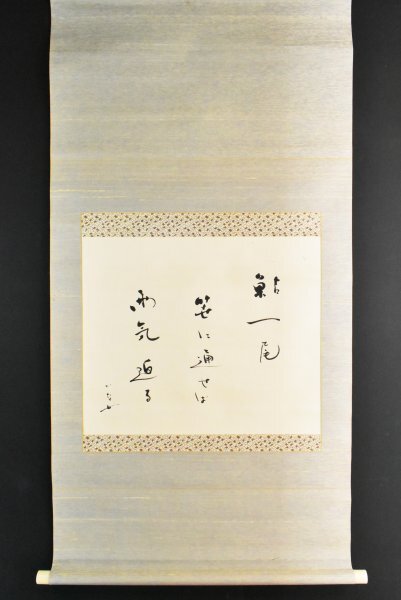 鮎一尾
笹に通せは
雨気迫る